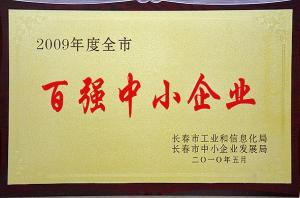 2009年度全市
百强中小企业
长春市工业和信息化局
长春市中小企业发展局
二〇一〇年五月